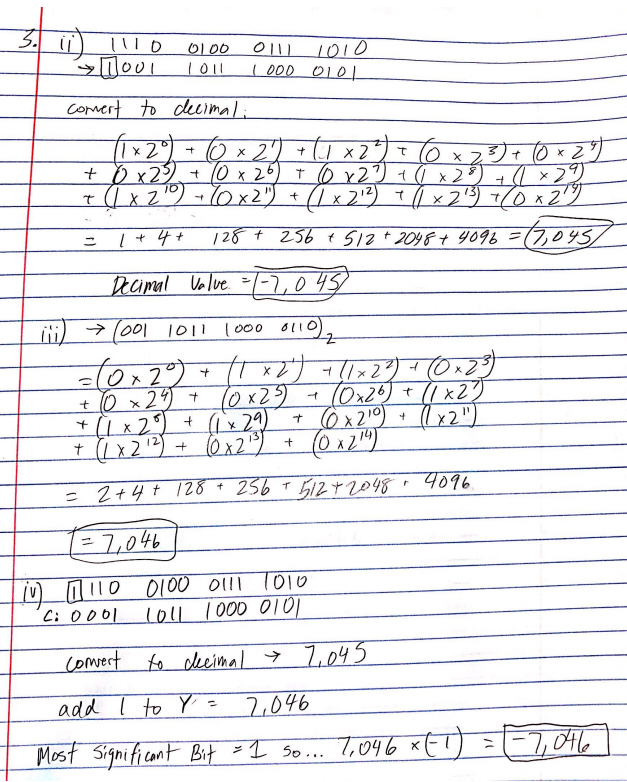 3. ii) 1110 0100 0111 1010
→ 1001 1011 1000 0101
convert to decimal:
(1 x 2⁰) + (0 x 2¹) + (1 x 2²) + (0 x 2³) + (0 x 2⁴)
+ (0 x 2⁵) + (0 x 2⁶) + (0 x 2⁷) + (1 x 2⁸) + (1 x 2⁹)
+ (1 x 2¹⁰) + (0 x 2¹¹) + (1 x 2¹²) + (1 x 2¹³) + (0 x 2¹⁴)
= 1 + 4 + 128 + 256 + 512 + 2048 + 4096 = 7,045
Decimal Value = -7,045
iii) → (001 1011 1000 0110)₂
= (0 x 2⁰) + (1 x 2¹) + (1 x 2²) + (0 x 2³)
+ (0 x 2⁴) + (0 x 2⁵) + (0 x 2⁶) + (1 x 2⁷)
+ (1 x 2⁸) + (1 x 2⁹) + (0 x 2¹⁰) + (1 x 2¹¹)
+ (1 x 2¹²) + (0 x 2¹³) + (0 x 2¹⁴)
= 2 + 4 + 128 + 256 + 512 + 2048 + 4096
= 7,046
iv) 1110 0100 0111 1010
C: 0001 1011 1000 0101
convert to decimal → 7,045
add 1 to Y = 7,046
Most Significant Bit = 1 so... 7,046 x (-1) = -7,046